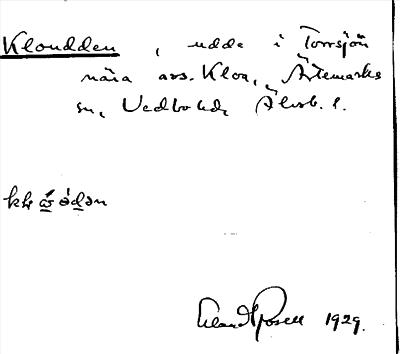 Kloudden, udde i Torrsjön
nära avs. Kloa, Ärtemarks
sn, Vedbo hd, Älvsb. l.
Erland Rosell 1929.